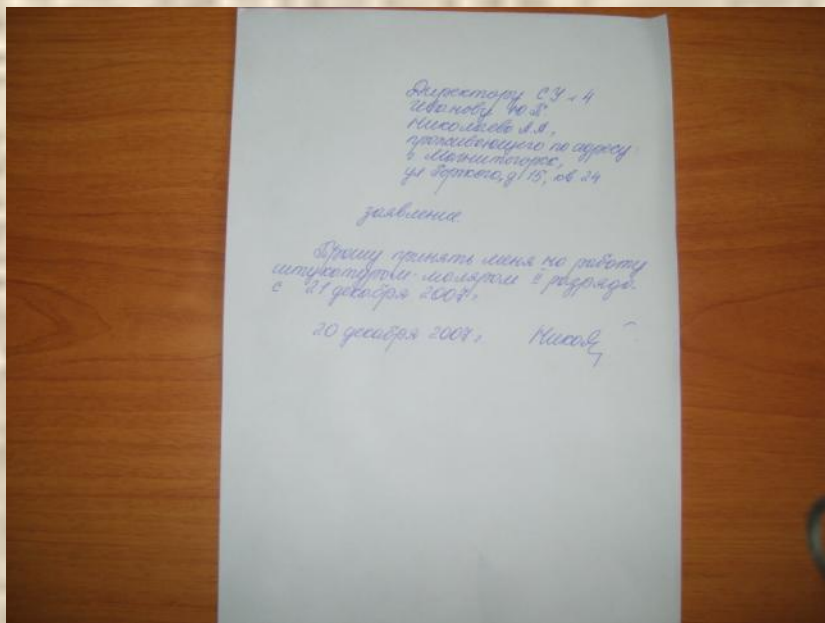 Директору СУ-4
Иванову Ю.Б.
Николаева А.А.,
проживающего по адресу:
г. Магнитогорск,
ул Горького, д 15, кв 24
заявление
Прошу принять меня на работу
штукатуром-маляром II разряда
с 21 декабря 2007г.
20 декабря 2007г.